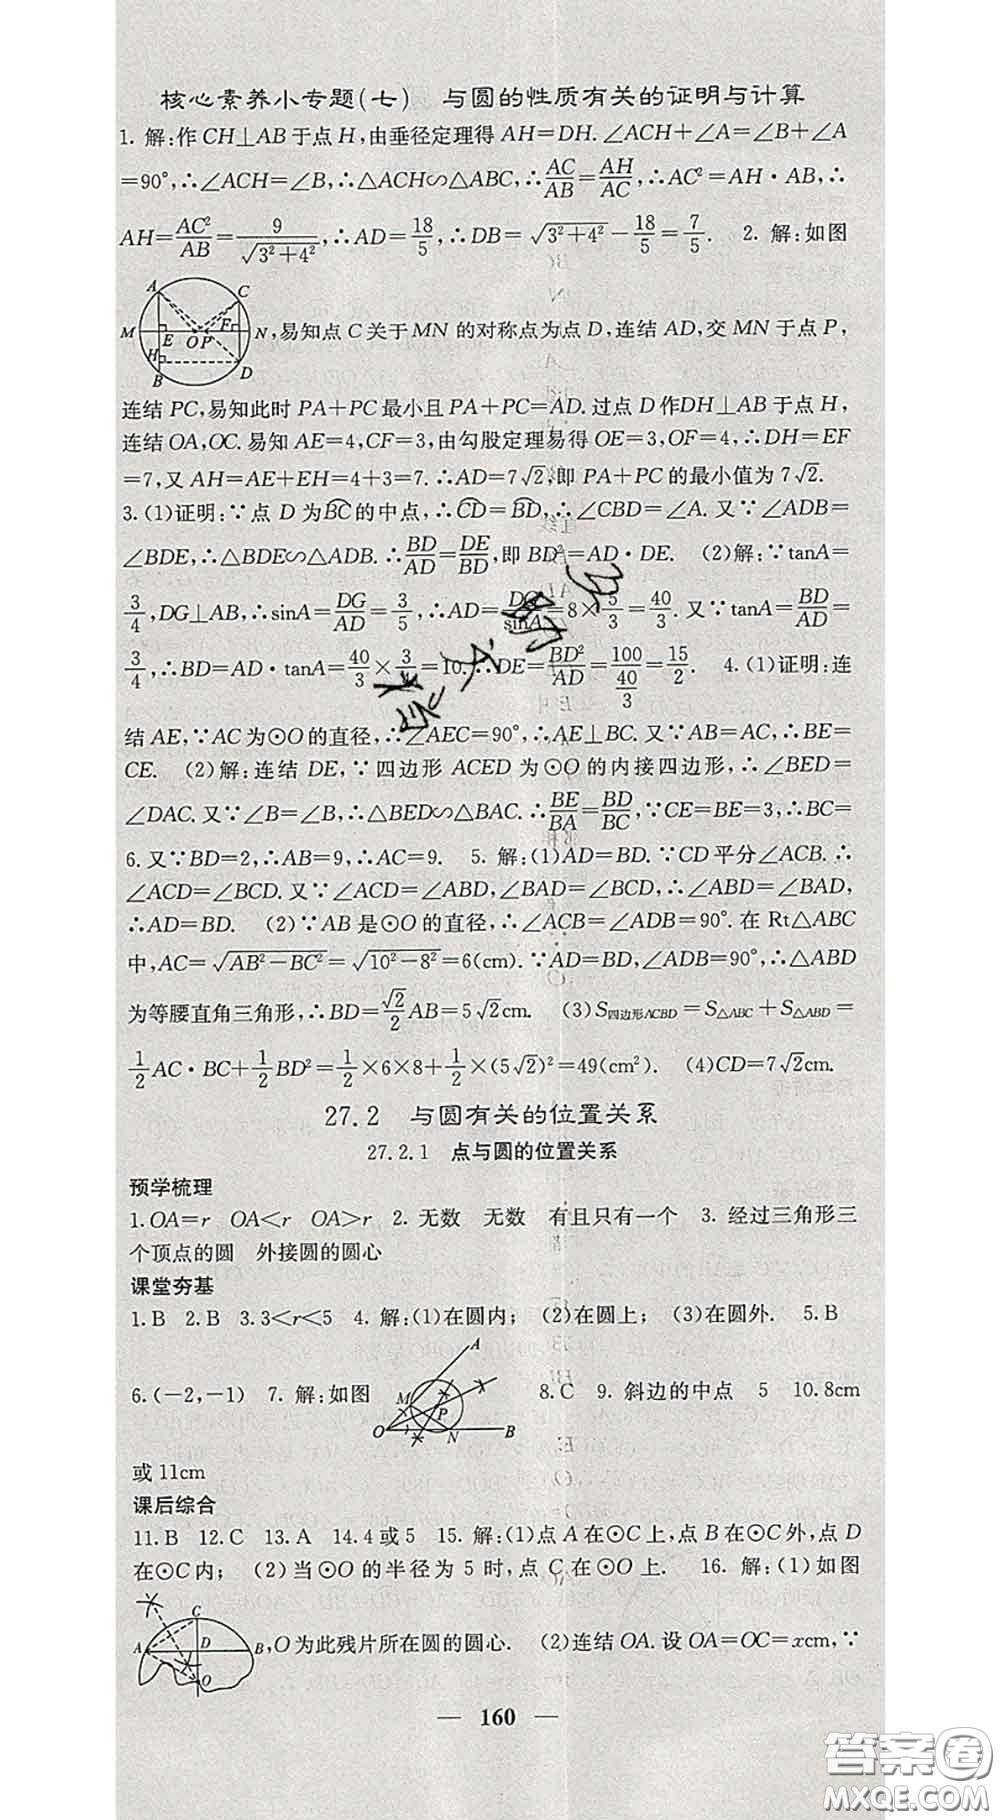 核心素养小专题(七)　与圆的性质有关的证明与计算
1. 解:作 CH⊥AB 于点 H,由垂径定理得 AH=DH.∠ACH+∠A=∠B+∠A
=90°,∴∠ACH=∠B,∴△ACH∽△ABC,∴AC/AB=AH/AC,∴AC²=AH·AB,∴
AH=AC²/AB=9/√(3²+4²),∴AD=18/5,∴DB=√(3²+4²)-18/5=7/5.　2. 解:如图
A C M E O P F N H B D
,易知点 C 关于 MN 的对称点为点 D,连结 AD,交 MN 于点 P,
连结 PC,易知此时 PA+PC 最小且 PA+PC=AD.过点 D 作DH⊥AB 于点 H,
连结 OA,OC.易知 AE=4,CF=3,由勾股定理易得 OE=3,OF=4,∴DH=EF
=7,又 AH=AE+EH=4+3=7.∴AD=7√2,即 PA+PC 的最小值为 7√2.
3.(1)证明:∵点 D 为BC的中点,∴CD=BD,∴∠CBD=∠A.又∵∠ADB=
∠BDE,∴△BDE∽△ADB.∴BD/AD=DE/BD,即 BD²=AD·DE.　(2)解:∵tanA=
3/4,DG⊥AB,∴sinA=DG/AD=3/5,∴AD=DG/sinA=8×5/3=40/3.又∵tanA=BD/AD=
3/4,∴BD=AD·tanA=40/3×3/4=10.∴DE=BD²/AD=100/(40/3)=15/2.　4.(1)证明:连
结 AE,∵AC 为⊙O 的直径,∴∠AEC=90°,∴AE⊥BC.又∵AB=AC,∴BE=
CE.　(2)解:连结 DE,∵四边形 ACED 为⊙O 的内接四边形,∴∠BED=
∠DAC.又∵∠B=∠B,∴△BED∽△BAC.∴BE/BA=BD/BC,∵CE=BE=3,∴BC=
6.又∵BD=2,∴AB=9,∴AC=9.　5. 解:(1)AD=BD.∵CD 平分∠ACB.∴
∠ACD=∠BCD.又∵∠ACD=∠ABD,∠BAD=∠BCD,∴∠ABD=∠BAD,
∴AD=BD.　(2)∵AB 是⊙O 的直径,∴∠ACB=∠ADB=90°.在 Rt△ABC
中,AC=√(AB²-BC²)=√(10²-8²)=6(cm).∵AD=BD,∠ADB=90°,∴△ABD
为等腰直角三角形,∴BD=√2/2AB=5√2cm.　(3)S四边形ACBD=S△ABC+S△ABD=
1/2AC·BC+1/2BD²=1/2×6×8+1/2×(5√2)²=49(cm²).　(4)CD=7√2cm.
27.2　与圆有关的位置关系
27.2.1　点与圆的位置关系
预学梳理
1.OA=r　OA<r　OA>r　2. 无数　无数　有且只有一个　3. 经过三角形三
个顶点的圆　外接圆的圆心
课堂夯基
1.B　2.B　3.3<r<5　4. 解:(1)在圆内;　(2)在圆上;　(3)在圆外.　5.B
6.(-2,-1)　7. 解:如图
A M P O N B
8.C　9. 斜边的中点　5　10.8cm
或11cm
课后综合
11.B　12.C　13.A　14.4或5　15. 解:(1)点 A 在⊙C 上,点 B 在⊙C 外,点 D
在⊙C 内;　(2)当⊙O 的半径为 5 时,点 C 在⊙O 上.　16. 解:(1)如图
C A D B O
,O 为此残片所在圆的圆心.　(2)连结 OA.设 OA=OC=xcm,∵
— 160 —
答案圈
MXQE.COM